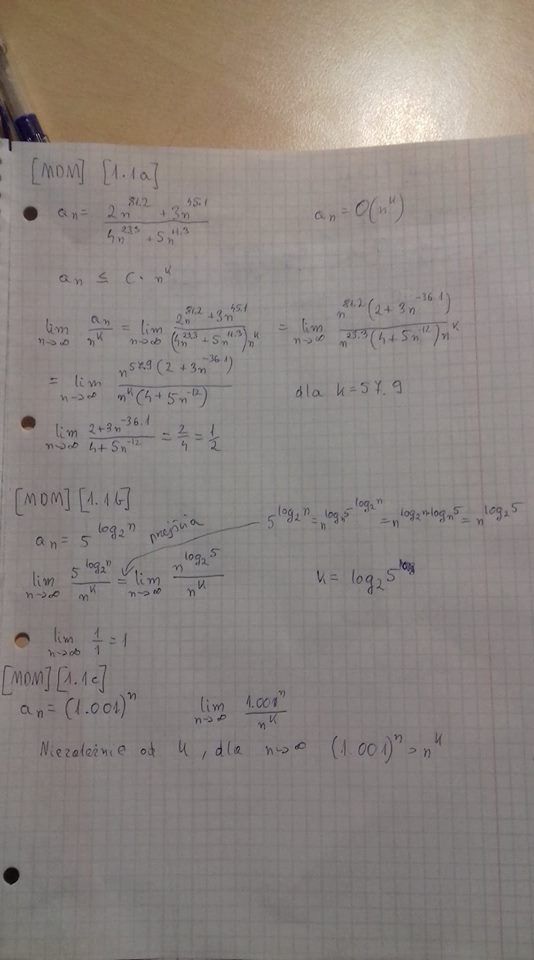 [MDM] [1.1a]
aₙ = (2n^81.2 + 3n^45.1)/(4n^23.3 + 5n^11.3)   aₙ = O(n^k)
aₙ ≤ C · n^k
lim n→∞ aₙ/n^k = lim n→∞ (2n^81.2 + 3n^45.1)/((4n^23.3 + 5n^11.3)n^k) = lim n→∞ n^81.2(2 + 3n^-36.1)/(n^23.3(4 + 5n^-12)n^k)
= lim n→∞ n^57.9(2 + 3n^-36.1)/(n^k(4 + 5n^-12))   dla k = 57.9
lim n→∞ (2 + 3n^-36.1)/(4 + 5n^-12) = 2/4 = 1/2
[MDM] [1.1b]
aₙ = 5^(log₂n)   przejścia   5^(log₂n) = n^(logₙ5^(log₂n)) = n^(log₂n·logₙ5) = n^(log₂5)
lim n→∞ 5^(log₂n)/n^k = lim n→∞ n^(log₂5)/n^k   k = log₂5
lim n→∞ 1/1 = 1
[MDM] [1.1c]
aₙ = (1.001)^n   lim n→∞ 1.001^n/n^k
Niezależnie od k, dla n→∞ (1.001)^n > n^k